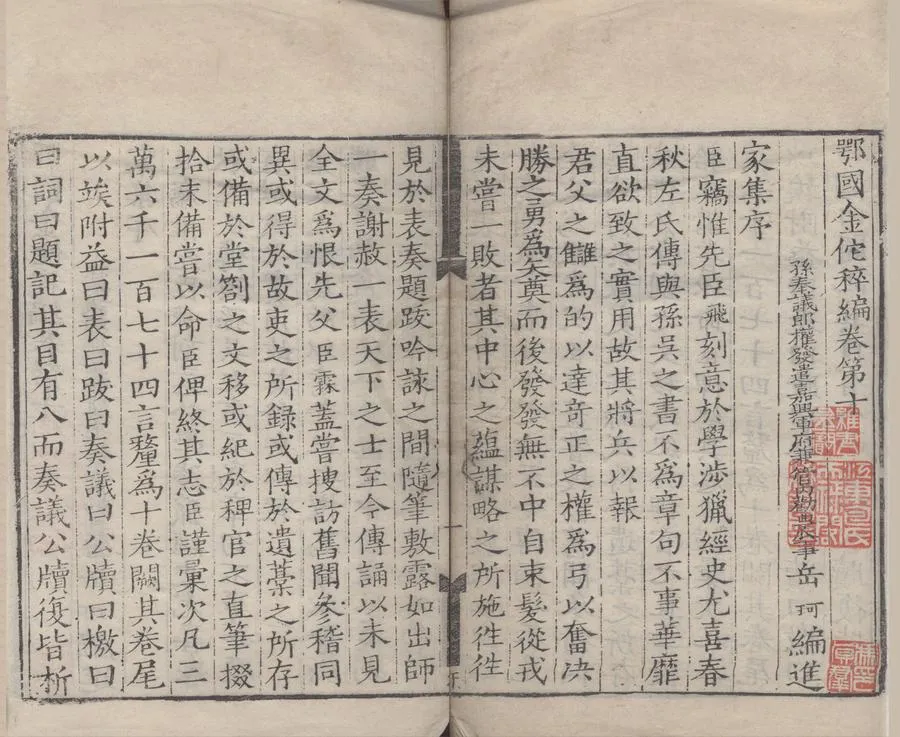 鄂國金佗稡編卷第十
孫奉議郎權發遣嘉興軍府兼管內勸農事岳珂編進
家集序
臣竊惟先臣飛刻意於學涉獵經史尤喜春
秋左氏傳與孫吳之書不為章句不事華靡
直欲致之實用故其將兵以報
君父之讎為的以達奇正之權為弓以奮決
勝之勇為矢奠而後發發無不中自束髮從戎
未嘗一敗者其中心之蘊謀略之所施徃徃
見於表奏題跋吟詠之間隨筆敷露如出師
一奏謝赦一表天下之士至今傳誦以未見
全文爲恨先父臣霖蓋嘗搜訪舊聞參稽同
異或得於故吏之所録或傳於遺藁之所存
或備於堂劄之文移或紀於稗官之直筆掇
拾未備嘗以命臣俾終其志臣謹彙次凡三
萬六千一百七十四言釐爲十卷闕其卷尾
以竢附益曰表曰跋曰奏議曰公牘曰檄曰
曰詞曰題記其目有八而奏議公牘復皆析